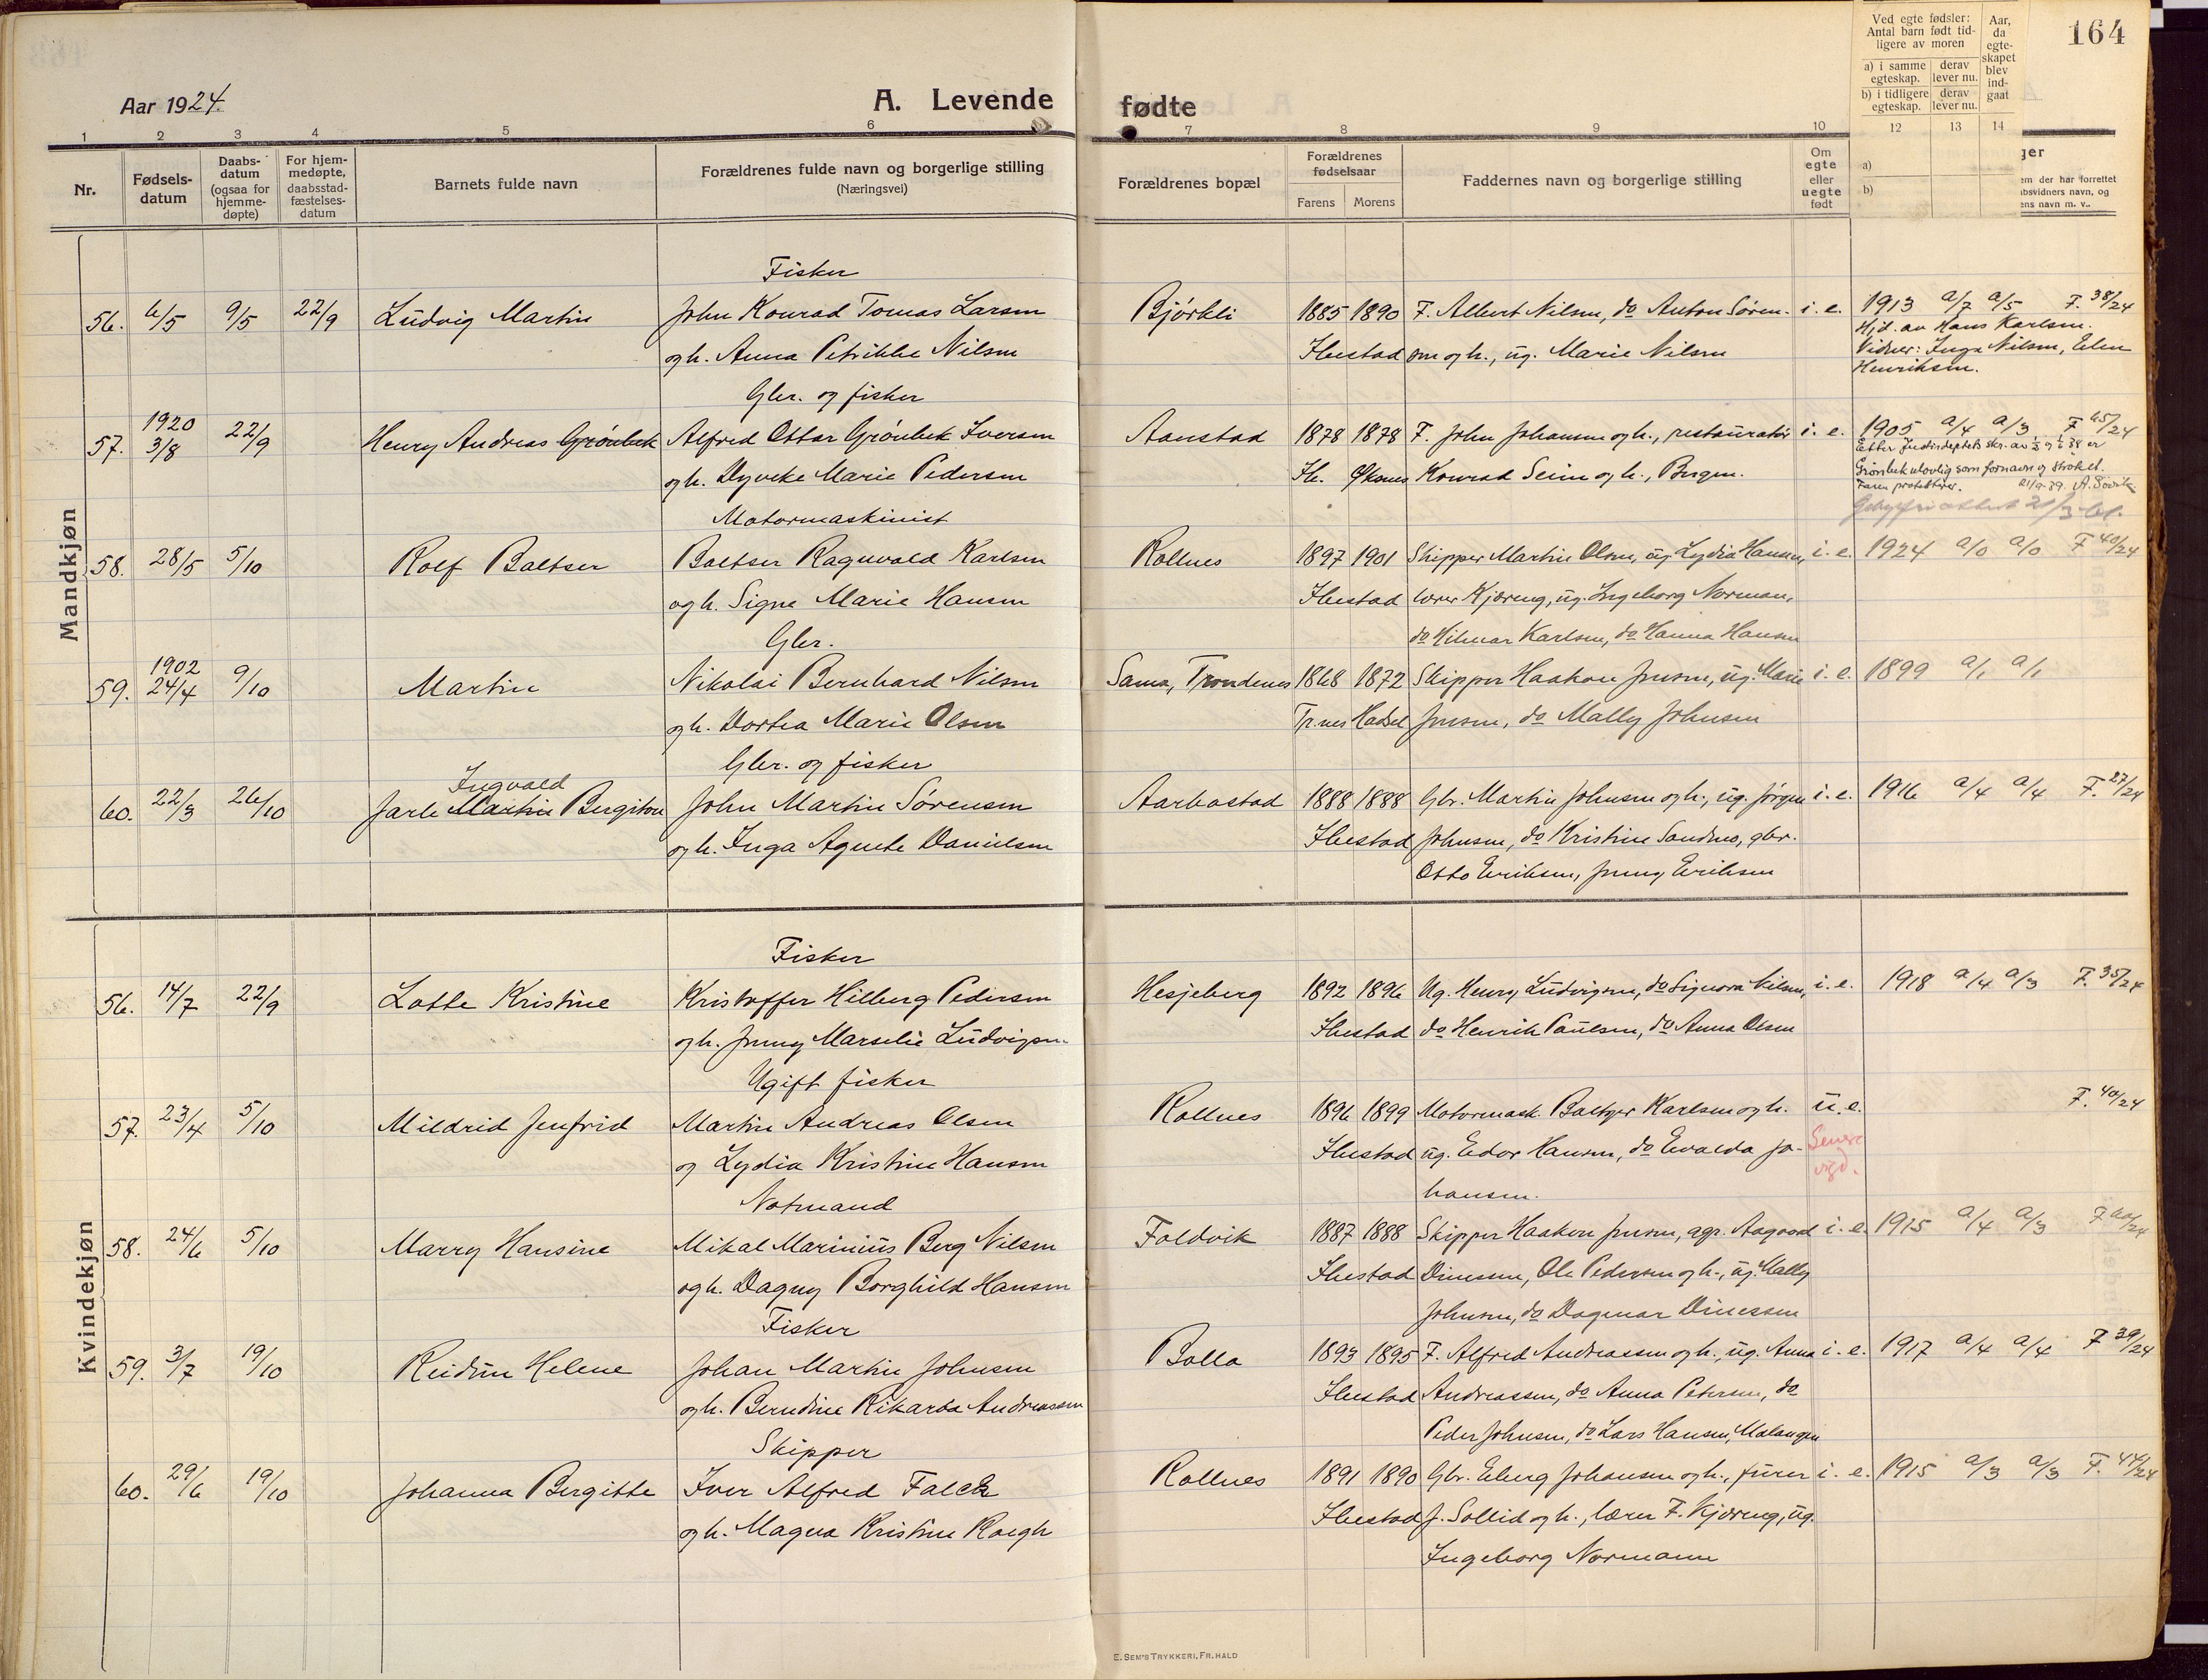 164
Aar 1924.
A. Levende fødte
Ved egte fødsler: Antal barn født tidligere av moren
a) i samme egteskap. derav lever nu.
b) i tidligere egteskap. derav lever nu.
Aar, da egteskapet blev indgaat
1 2 3 4 5 6 7 8 9 10 12 13 14
Nr.
Fødselsdatum
Daabsdatum (ogsaa for hjemmedøpte)
For hjemmedøpte, daabsstadfæstelsesdatum
Barnets fulde navn
Forældrenes fulde navn og borgerlige stilling
(Næringsvei)
Forældrenes bopæl
Forældrenes fødselsaar
Farens Morens
Faddernes navn og borgerlige stilling
Om egte eller uegte født
a)
b)
Mandkjøn
Fisker
56. 6/5 9/5 22/9 Ludvig Martin John Konrad Tomas Larsen Bjørkli 1885 1890 F. Albert Nilsen, do Anton Søren- i. e. 1913 a/7 a/5 F. 38/24
og h. Anna Petrikke Nilsen Ibestad sen og h., ug. Marie Nilsen
Hjd. av Hans Karlsen.
Vidner: Inga Nilsen, Elen
Henriksen.
Gbr. og fisker
57. 1920 3/8 22/9 Henry Andreas Grönbek Alfred Ottar Grönbek Iversen Aanstad 1878 1878 F. John Johansen og h., restauratør i. e. 1905 a/4 a/3 F 65/24
og h. Dyveke Marie Pedersen Ib. Øksnes Konrad Seim og h., Bergen.
Grönbek ulovlig som fornavn og strøket.
Faren protesterer.
Motormaskinist
58. 28/5 5/10 Rolf Baltser Baltser Ragnvald Karlsen Rollnes 1897 1901 Skipper Martin Olsen, ug. Lydia Hansen, i. e. 1924 a/0 a/0 F 40/24
og h. Signe Marie Hansen Ibestad lærer Kjæreng, ug. Ingeborg Norman,
do Hilmar Karlsen, do Hanna Hansen
Gbr.
59. 1902 24/4 9/10 Martin Nikolai Bernhard Nilsen Sama, Trondenes 1868 1872 Skipper Haakon Jensen, ug. Marie i. e. 1899 a/1 a/1
og h. Dortea Marie Olsen Tr.nes Hadsel Jensen, do Mally Johnsen
Gbr. og fisker
Ingvald
60. 22/3 26/10 Jarle Martin Bergiton John Martin Sørensen Aarbostad 1888 1888 Gbr. Martin Johnsen og h., ug. Jørgen i. e. 1916 a/4 a/4 F. 27/24
og h. Inga Agnete Danielsen Ibestad Johnsen, do Kristine Sandnes, gbr.
Otto Eriksen, Jenny Eriksen
Kvindekjøn
Fisker
56. 14/7 22/9 Lotte Kristine Kristoffer Hilberg Pedersen Hesjeberg 1892 1896 Ug. Henry Ludvigsen, do Signora Nilsen, i. e. 1918 a/4 a/3 F. 35/24
og h. Jenny Marselie Ludvigsen. Ibestad do Henrik Paulsen, do Anna Olsen
Ugift fisker
57. 23/4 5/10 Mildrid Jenfrid Martin Andreas Olsen Rollnes 1896 1899 Motormask. Baltzer Karlsen og h. u. e. F. 40/24
og Lydia Kristine Hansen Ibestad ug. Edor Hansen, do Evalda Jo- Senere
hansen. vigd.
Notmand
58. 24/6 5/10 Marry Hansine Mikal Marinius Berg Nilsen Foldvik 1887 1888 Skipper Haakon Jensen, agr. Aagaard i. e. 1915 a/4 a/3
og h. Dagny Borghild Hansen Ibestad Dinessen, Ole Pedersen og h., ug. Mally
Johnsen, do Dagmar Dinessen
Fisker
59. 3/7 19/10 Reidun Helene Johan Martin Johnsen Bolla 1893 1895 F. Alfred Andreassen og h., ug. Anna i. e. 1917 a/4 a/4 F 39/24
og h. Berndine Rikarda Andreassen Ibestad Andreassen, do Anna Petersen, do
Peder Johnsen, do Lars Hansen, Malangen
Skipper
60. 29/6 19/10 Johanna Bergitte Iver Alfred Falck Rollnes 1891 1890 Gbr. Eberg Johansen og h., furer i. e. 1915 a/3 a/3 F. 44/24
og h. Magna Kristine Kaegh Ibestad J. Sollid og h., lærer F. Kjæreng, ug.
Ingeborg Normann
E. SEM'S TRYKKERI, FR.HALD